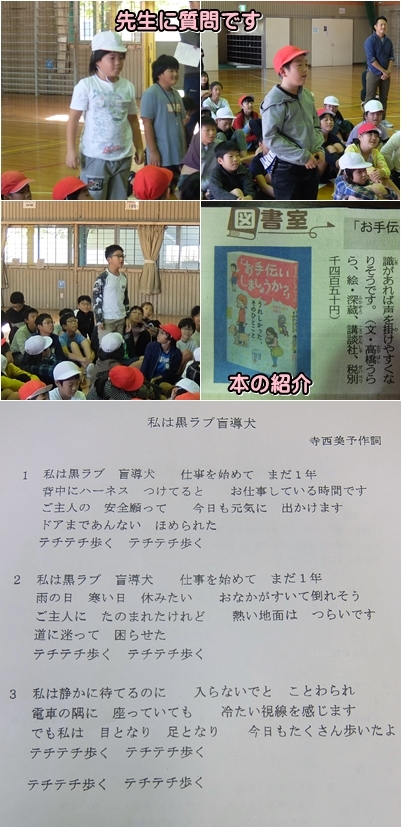 先生に質問です
図書室
「お手伝
識があれば声を掛けやすくな
りそうです。(文・高橋うら
ら、絵・深蔵、講談社、税別
千四百五十円)
お手伝い
しましょうか?
うれしかった、
そのひとこと
本の紹介
私は黒ラブ盲導犬
寺西美予作詞
1 私は黒ラブ 盲導犬 仕事を始めて まだ1年
背中にハーネス つけてると お仕事している時間です
ご主人の 安全願って 今日も元気に 出かけます
ドアまであんない ほめられた
テチテチ歩く テチテチ歩く
2 私は黒ラブ 盲導犬 仕事を始めて まだ1年
雨の日 寒い日 休みたい おなかがすいて倒れそう
ご主人に たのまれたけれど 熱い地面は つらいです
道に迷って 困らせた
テチテチ歩く テチテチ歩く
3 私は静かに待てるのに 入らないでと ことわられ
電車の隅に 座っていても 冷たい視線を感じます
でも私は 目となり 足となり 今日もたくさん歩いたよ
テチテチ歩く テチテチ歩く
テチテチ歩く テチテチ歩く